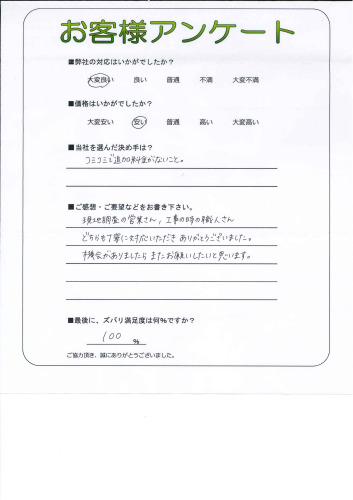 お客様アンケート
■弊社の対応はいかがでしたか？
大変良い 良い 普通 不満 大変不満
■価格はいかがでしたか？
大変安い 安い 普通 高い 大変高い
■当社を選んだ決め手は？
コミコミで追加料金がないこと。
■ご感想・ご要望などをお書き下さい。
現地調査の営業さん，工事の時の職人さん
どちらも丁寧に対応いただき ありがとうございました。
機会がありましたら またお願いしたいと思います。
■最後に、ズバリ満足度は何％ですか？
100 ％
ご協力頂き、誠にありがとうございました。